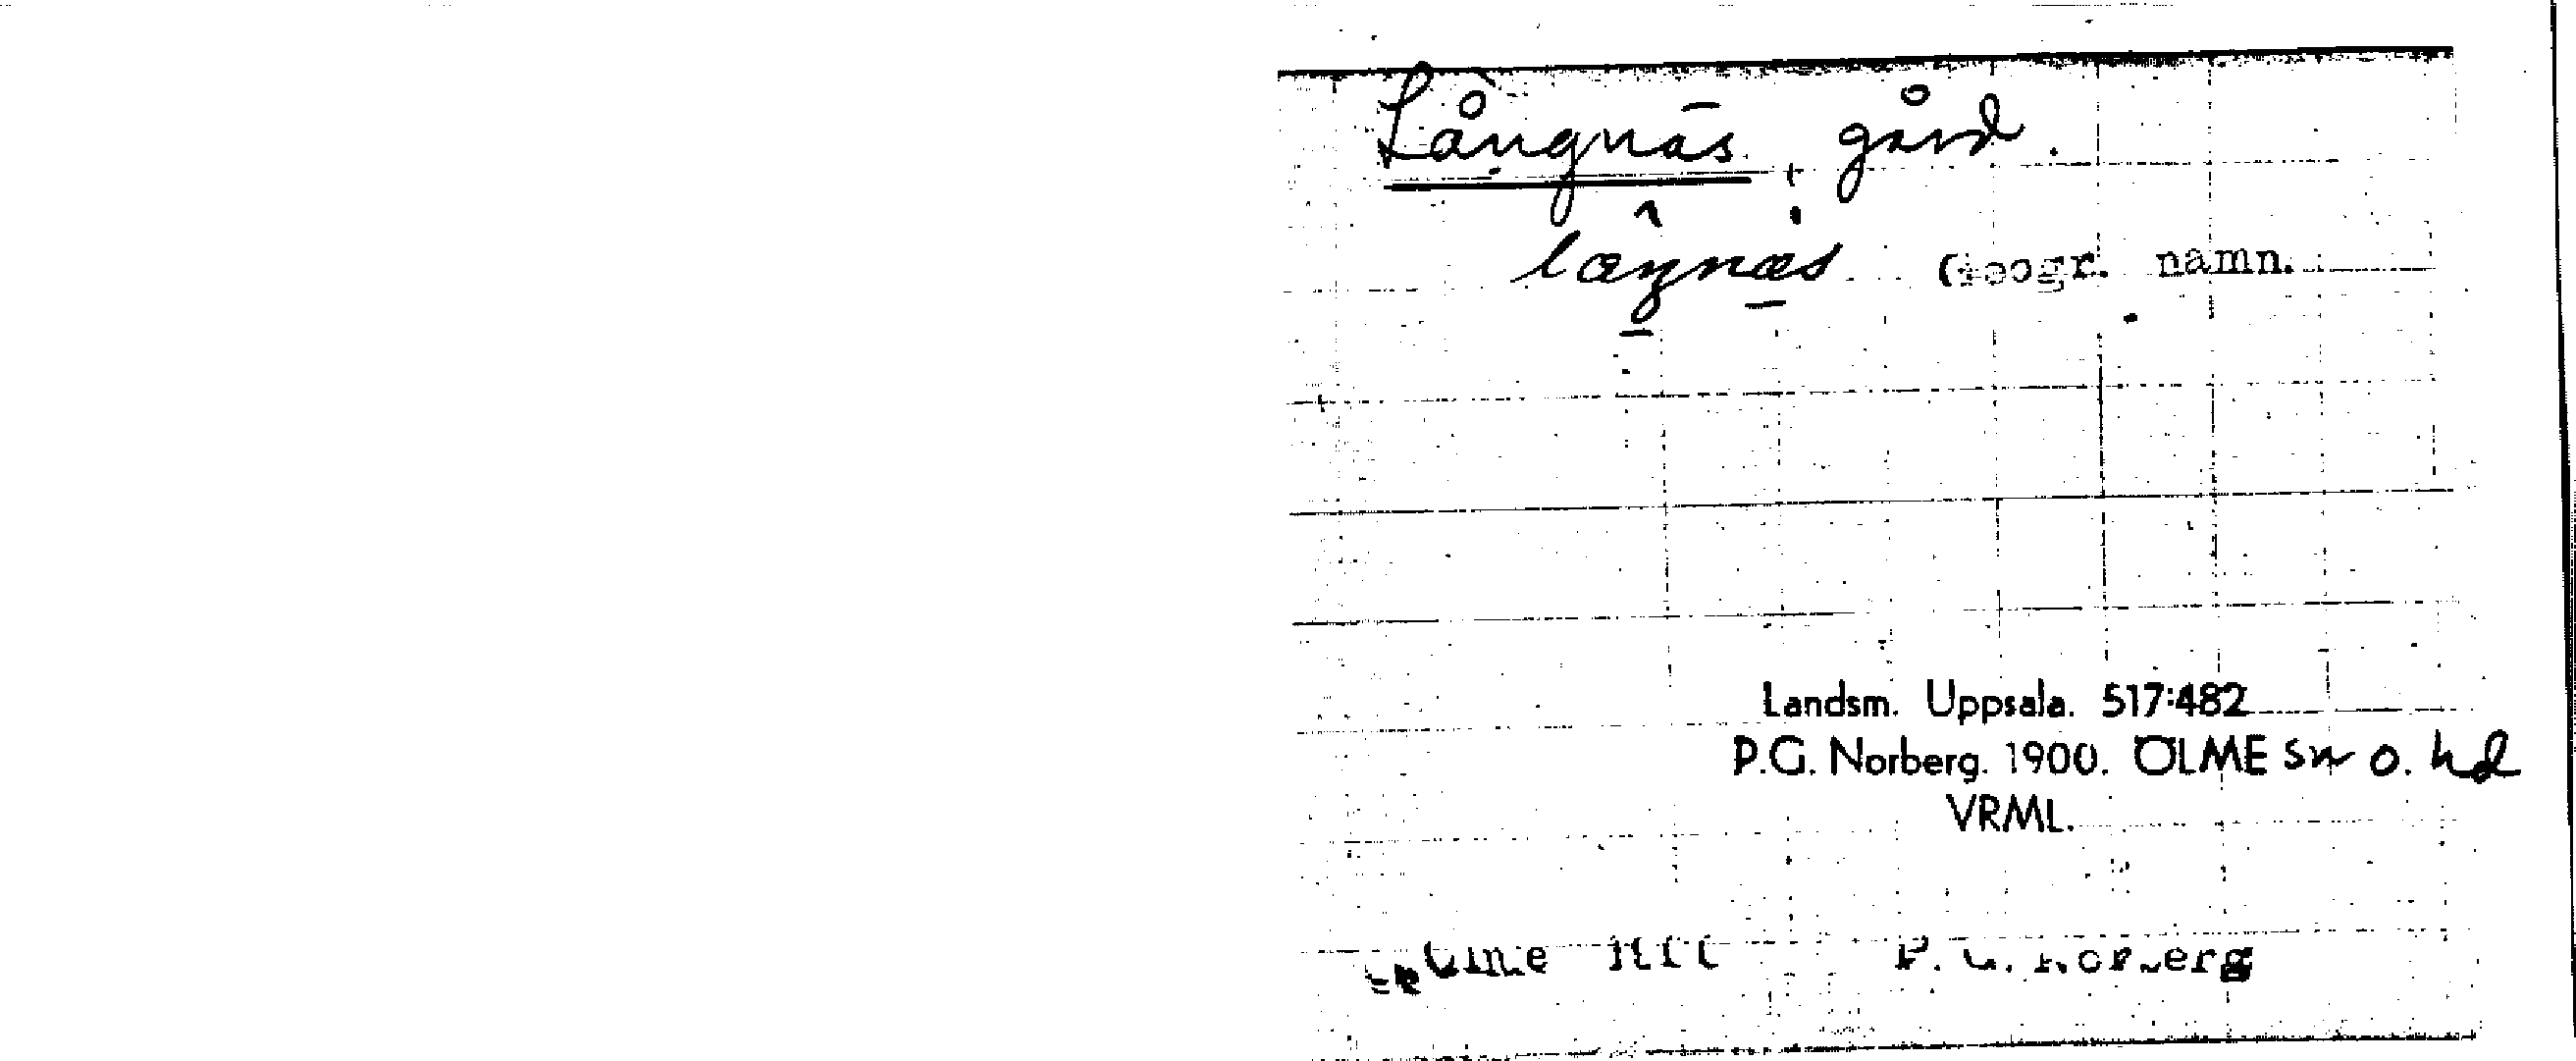 Långnäs, gård.
læŋnæs (Geogr. namn.
Landsm. Uppsala. 517:482
P.G. Norberg. 1900. ÖLME sn o. hd
VRML.
Ölme P. G. Norberg